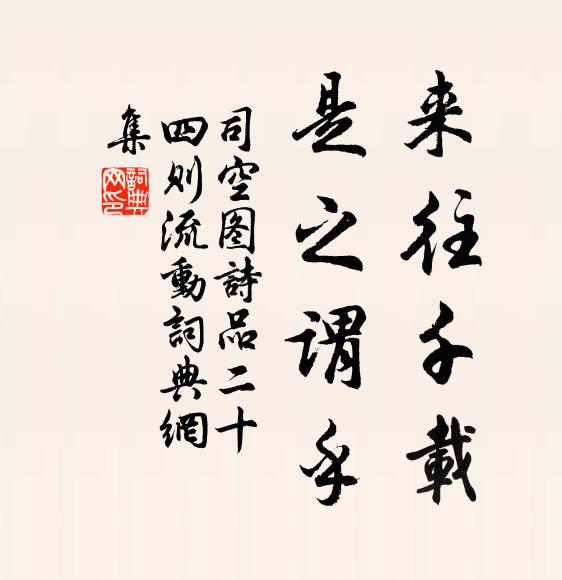 来往千載
是之謂乎
司空图詩品二十
四则流動詞典網
集
詞典
网印